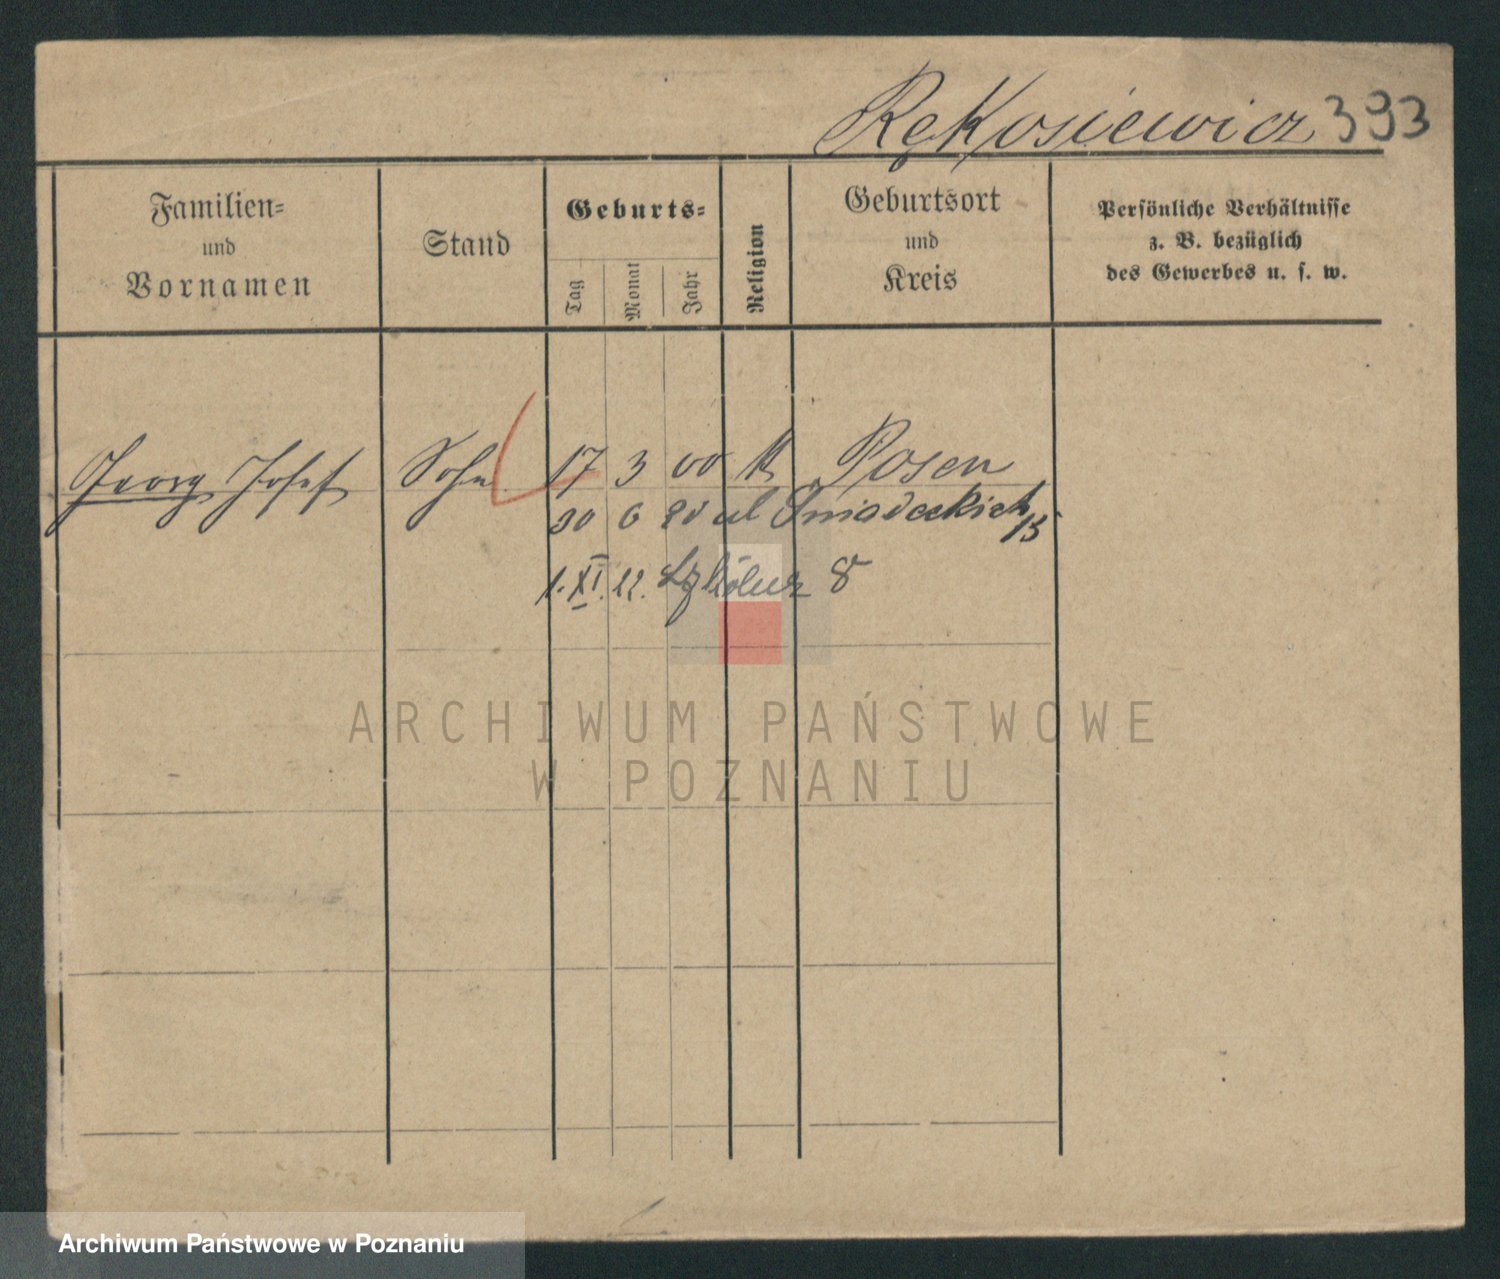 Rękosiewicz 393
Familien-
und
Vornamen
Stand
Geburts-
Tag
Monat
Jahr
Religion
Geburtsort
und
Kreis
Persönliche Verhältnisse
z. B. bezüglich
des Gewerbes u. s. w.
Georg Josef Sohn 17 3 00 K Posen
30 6 20 ul Śniadeckich 15
1. XI. 22. 8
ARCHIWUM PAŃSTWOWE
W POZNANIU
Archiwum Państwowe w Poznaniu